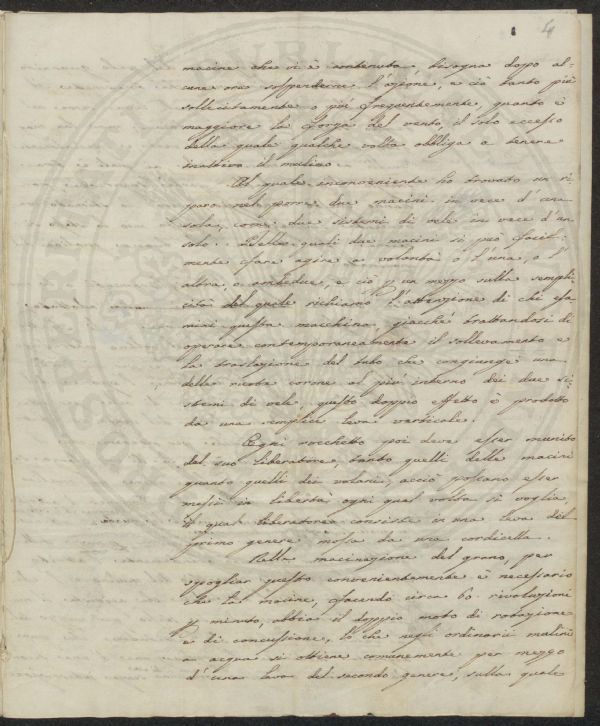 4
macine che vi è contenuta bisogna dopo al-
cune ore sospenderne l'azione, e ciò tanto più
sollecitamente o più frequentemente, quanto è
maggiore la forza del vento, il solo eccesso
della quale qualche volta obbliga a tenere
inattivo il mulino.
Al quale inconveniente ho trovato un ri-
paro nel porre due macini in vece d'una
sola, come due sistemi di vele in vece d'un
solo. Delle quali due macini si può facil-
mente fare agire a volontà o l'una, o l'
altra, o ambedue, e ciò p un mezzo sulla sempli-
cità del quale richiamo l'attenzione di chi esa-
mini questa macchina, giacchè trattandosi di
operare contemporaneamente il sollevamento e
la traslazione del tubo che congiunge una
delle ruote corone al più interno dei due si-
stemi di vele questo doppio effetto è prodotto
da una semplice leva verticale.
Ogni rocchetto poi deve esser munito
del suo liberatore, tanto quelli delle macini
quanto quelli dei volani, acciò possano esser
messi in libertà ogni qual volta si voglia,
il qual liberatore consiste in una leva del
primo genere mossa da una cordicella.
Nella macinazione del grano, per
spogliar questo convenientemente è necessario
che la macine, facendo circa 60 rivoluzioni
p minuto, abbia il doppio moto di rotazione
e di concussione, lo che negli ordinarii mulini
a acqua si ottiene comunemente per mezzo
d'una leva del secondo genere, sulla quale